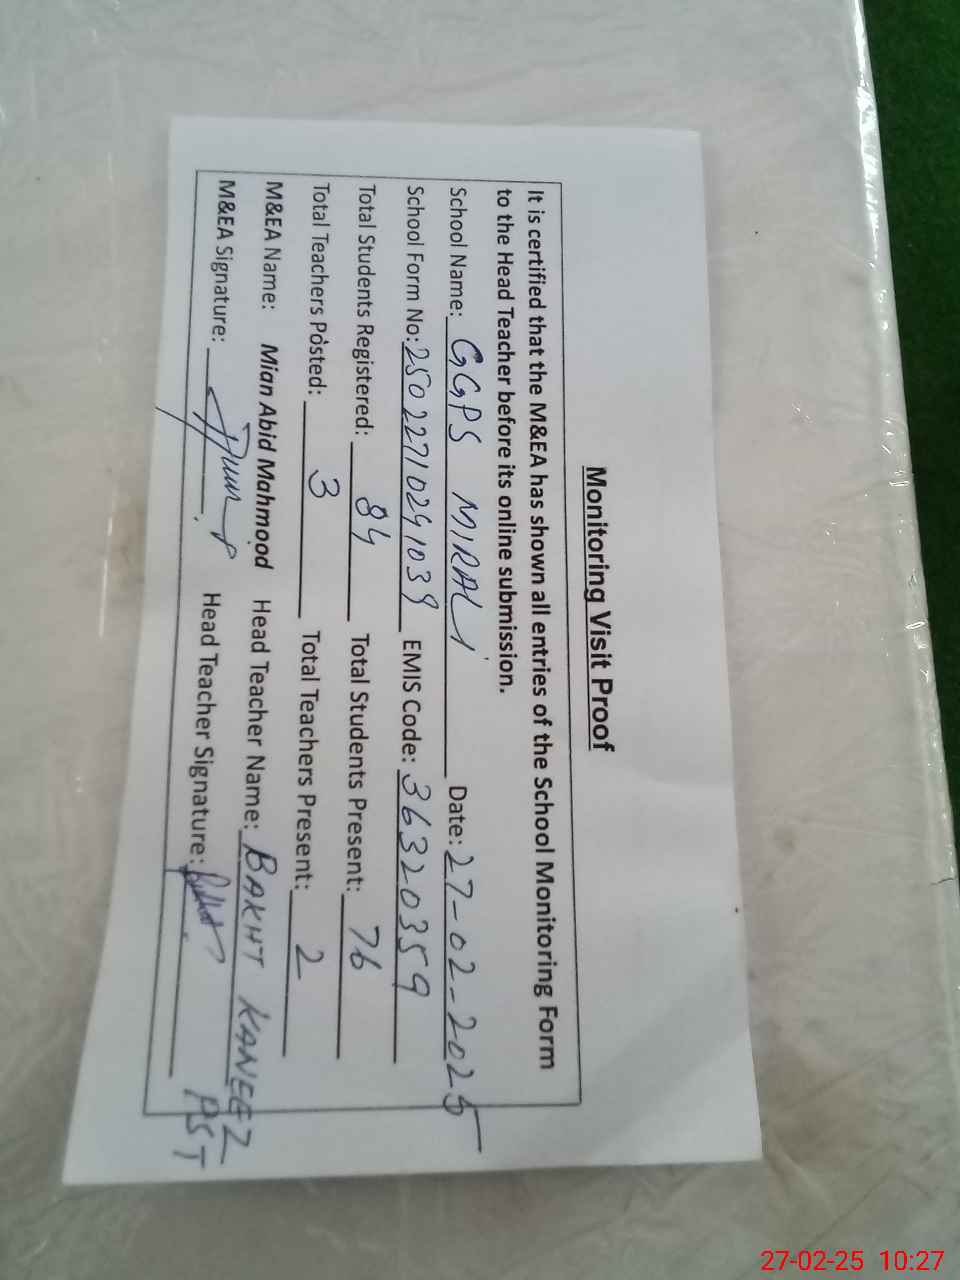 Monitoring Visit Proof
It is certified that the M&EA has shown all entries of the School Monitoring Form
to the Head Teacher before its online submission.
School Name: GGPS MIRALI Date: 27-02-2025
School Form No: 25022710291039 EMIS Code: 36320359
Total Students Registered: 84 Total Students Present: 76
Total Teachers Posted: 3 Total Teachers Present: 2
M&EA Name: Mian Abid Mahmood Head Teacher Name: BAKHT KANEEZ
PST
M&EA Signature: Head Teacher Signature:
27-02-25 10:27